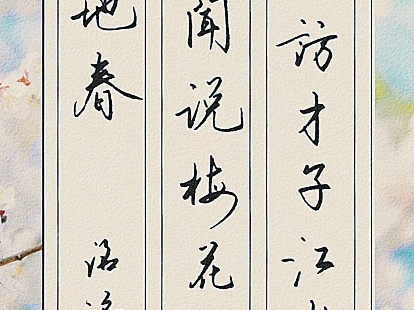 访才子江
闻说梅花
地春
洛